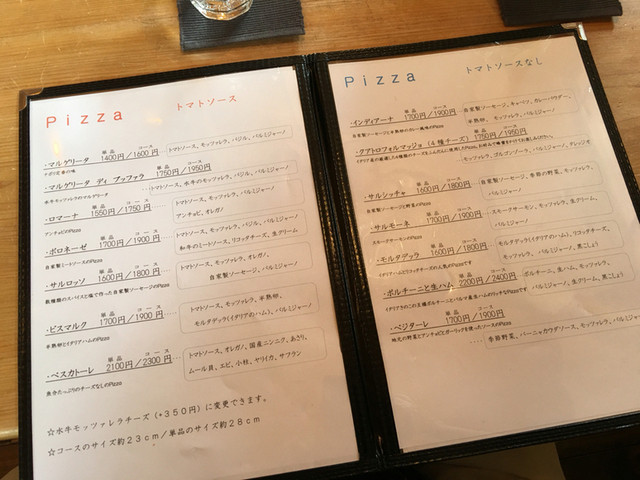 Pizza トマトソース
単品 コース
・マルゲリータ 1400円/1600円
トマトソース、モッツァレラ、バジル、パルミジャーノ
ナポリ定番の味
単品 コース
・マルゲリータ ディ ブッファラ 1750円/1950円
トマトソース、水牛のモッツァレラ、バジル、パルミジャーノ
水牛モッツァレラのマルゲリータ
単品 コース
・ロマーナ 1550円/1750円
トマトソース、モッツァレラ、パルミジャーノ
アンチョビ、オレガノ
アンチョビのPizza
単品 コース
・ボロネーゼ 1700円/1900円
トマトソース、モッツァレラ、バジル、パルミジャーノ
和牛のミートソース、リコッタチーズ、生クリーム
自家製ミートソースのPizza
単品 コース
・サルロッソ 1600円/1800円
トマトソース、モッツァレラ、オレガノ、
自家製ソーセージ、パルミジャーノ
数種類のスパイスと塩で作った自家製ソーセージのPizza
単品 コース
・ビスマルク 1700円/1900円
トマトソース、モッツァレラ、半熟卵、
モルタデッラ(イタリアのハム)、パルミジャーノ
半熟卵とイタリアハムのPizza
単品 コース
・ペスカトーレ 2100円/2300円
トマトソース、オレガノ、国産ニンニク、あさり、
ムール貝、エビ、小柱、ヤリイカ、サフラン
魚介たっぷりのチーズなしのPizza
☆水牛モッツァレラチーズ(+350円)に変更できます。
☆コースのサイズ約23cm/単品のサイズ約28cm
Pizza トマトソースなし
単品 コース
・インディアーナ 1700円/1900円
自家製ソーセージ、キャベツ、カレーパウダー、
半熟卵、モッツァレラ、パルミジャーノ
自家製ソーセージと半熟卵のカレー風味のPizza
単品 コース
・クアトロフォルマッジョ(4種チーズ) 1750円/1950円
モッツァレラ、ゴルゴンゾーラ、パルミジャーノ、タレッジオ
単品 コース
・サルシッチャ 1600円/1800円
自家製ソーセージ、季節の野菜、モッツァレラ、
パルミジャーノ
自家製ソーセージと野菜のPizza
単品 コース
・サルモーネ 1700円/1900円
スモークサーモン、モッツァレラ、生クリーム、
パルミジャーノ
スモークサーモンのPizza
単品 コース
・モルタデッラ 1600円/1800円
モルタデッラ(イタリアのハム)、リコッタチーズ、
モッツァレラ、パルミジャーノ、黒こしょう
イタリアハムとリコッタチーズの人気のPizzaです
単品 コース
・ポルチーニと生ハム 2200円/2400円
ポルチーニ、生ハム、モッツァレラ、
パルミジャーノ、生クリーム、黒こしょう
イタリアきのこの王様ポルチーニとパルマ産生ハムのリッチなPizzaです
単品 コース
・ベジターレ 1700円/1900円
季節野菜、バーニャカウダソース、モッツァレラ、パルミジャーノ
地元の野菜とアンチョビとガーリックを使ったソースのPizza